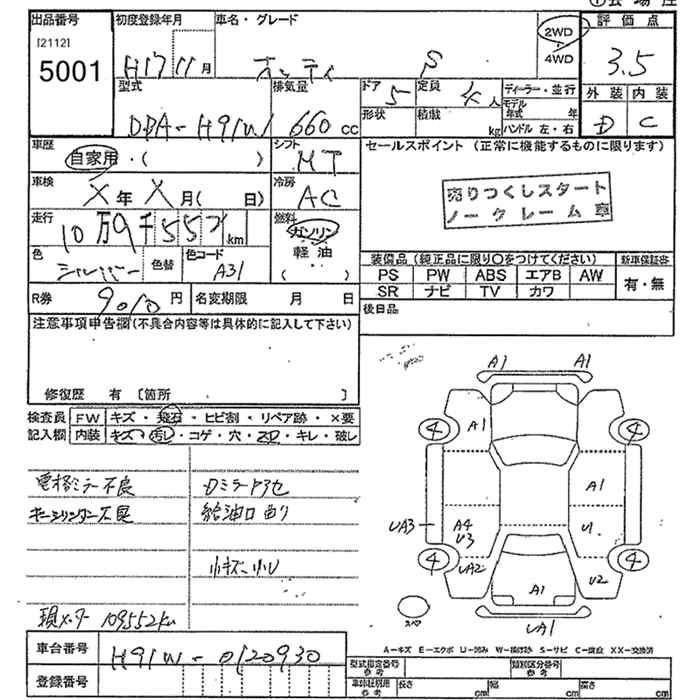 ①会場注
出品番号 初度登録年月 車名・グレード 2WD 4WD 評価点
[2112]
5001 H17 11月 オッティ S 3.5
型式 排気量 ドア 定員 ディーラー・並行 外装 内装
DBA-H91W 660 cc 5 4人 モデル年式 年 D C
形状 積載 kg ハンドル 左・右
車歴 自家用・( ) シフト MT セールスポイント(正常に機能するものに限ります)
車検 X年X月( 日) 冷房 AC 売りつくしスタート
ノークレーム車
走行 10万9千552km 燃料 ガソリン
軽油
( )
色 シルバー 色替 色コード A31 装備品(純正品に限り○をつけてください) 新車保証書
PS PW ABS エアB AW 有・無
SR ナビ TV カワ
R券 9010円 名変期限 月 日 後日品
注意事項申告欄(不具合内容等は具体的に記入して下さい)
修復歴 有 [箇所 ]
検査員 FW キズ・飛石・ヒビ割・リペア跡・×要
記入欄 内装 キズ・汚レ・コゲ・穴・スレ・キレ・破レ
電格ミラー不良 Dミラーアセ
キーシリンダー不具 給油口曲り
小キズ・小U
現メーター 109552km
A1 A1
A1
4 4
A1
UA3 A4 U3 U1
4 4
UA2 U2
A1
スペア UA1
A-キズ E-エクボ U-凹み W-補修跡 S-サビ C-腐食 XX-交換済
車台番号 H91W-0120930
登録番号
型式指定番号 参考 類別区分番号 参考
車体処理用 参考 長さ cm 幅 cm 高さ cm